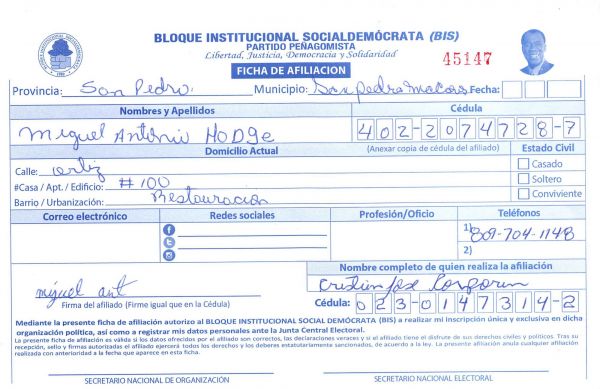 BLOQUE INSTITUCIONAL SOCIALDEMÓCRATA (BIS)
PARTIDO PEÑAGOMISTA
Libertad, Justicia, Democracia y Solidaridad
45147
FICHA DE AFILIACION
Provincia: San Pedro Municipio: San pedro Macoris Fecha:
Nombres y Apellidos Cédula
Miguel Antonio HODGe 402-2074728-7
Domicilio Actual (Anexar copia de cédula del afiliado) Estado Civil
Calle: ortiz Casado
#Casa / Apt. / Edificio: #100 Soltero
Barrio / Urbanización: Restauración Conviviente
Correo electrónico Redes sociales Profesión/Oficio Teléfonos
1) 809-704-1148
2)
Nombre completo de quien realiza la afiliación
miguel ant Cristian Jose
Firma del afiliado (Firme igual que en la Cédula) Cédula: 023-0147314-2
Mediante la presente ficha de afiliación autorizo al BLOQUE INSTITUCIONAL SOCIAL DEMÓCRATA (BIS) a realizar mi inscripción única y exclusiva en dicha
organización política, así como a registrar mis datos personales ante la Junta Central Electoral.
La presente ficha de afiliación es válida si los datos ofrecidos por el afiliado son correctos, las declaraciones veraces y si el afiliado tiene el disfrute de sus derechos civiles y políticos. Tras su
recepción, sello y firmas autorizadas el afiliado ejercerá todos los derechos y los deberes estatutariamente sancionados, de acuerdo a la ley. La presente afiliación anula cualquier afiliación
realizada con anterioridad a la fecha que aparece en esta ficha.
SECRETARIO NACIONAL DE ORGANIZACIÓN SECRETARIO NACIONAL ELECTORAL